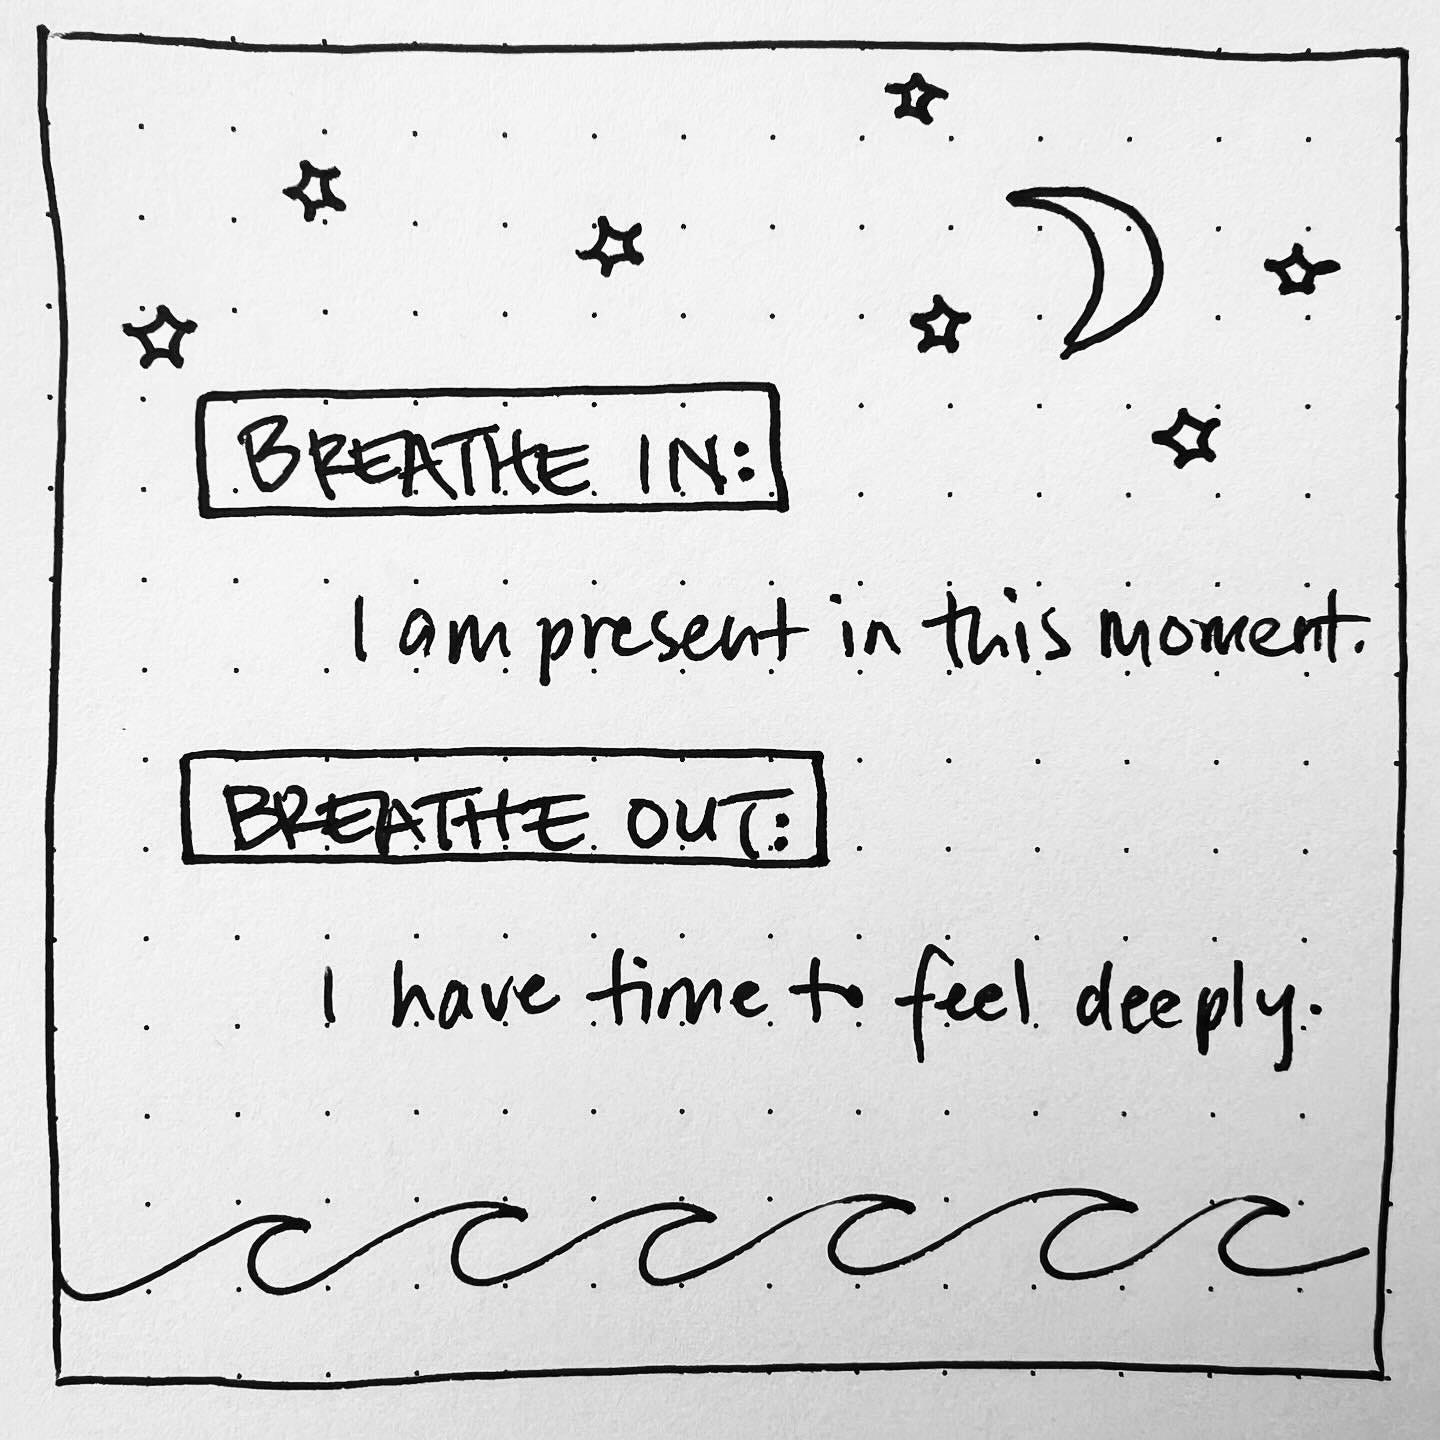 BREATHE IN:
I am present in this moment.
BREATHE OUT:
I have time to feel deeply.